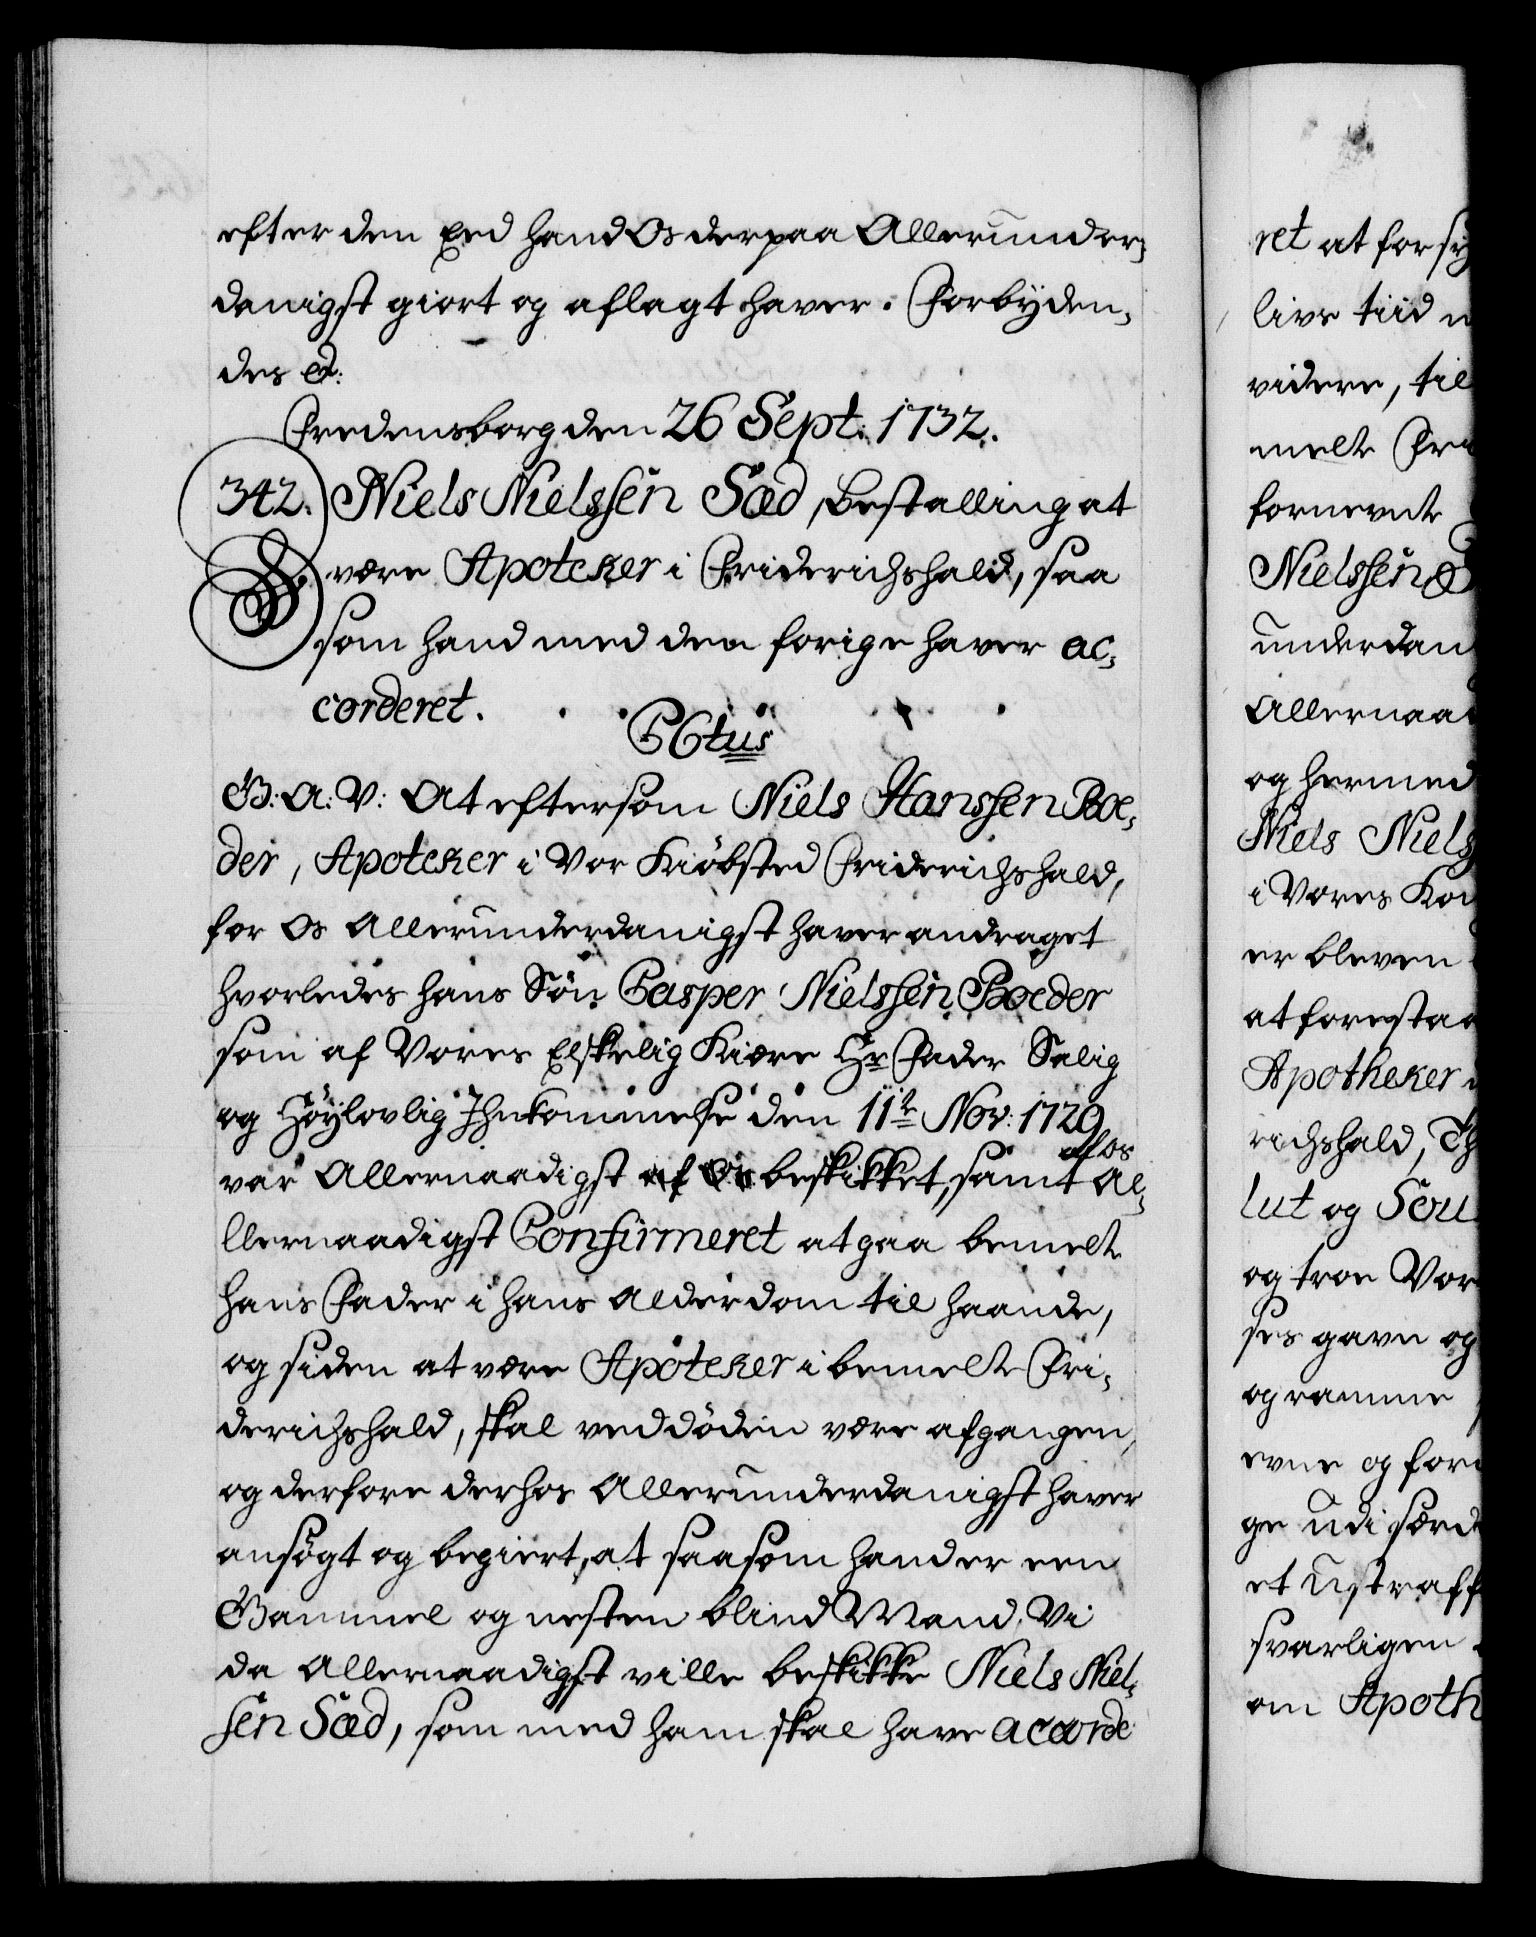 efter den Eed hand Os derpaa Allerunder,
danigst giort og aflagt haver. Forbyden,
des &:
Fredensborg den 26 Sept: 1732.
342. Niels Nielssen Sæd, Bestalling at
være Apoteker i Friderichshald, saa
som hand med den forige haver ac,
corderet.
C6tus
G: A: V: At eftersom Niels Hanssen Boe,
der, Apoteker i Vor Kiöbsted Friderichshald,
for Os Allerunderdanigst haver andraget
hvorledes hans Sön Casper Nielssen Boeder
som af Vores Elskelig Kiære Hr Fader Salig
og Höylovlig Ihukommelse den 11te Nov: 1729
af os
var Allernaadigst af Os beskikket, samt Al,
llernaadigst Confirmeret at gaa bemelte
hans Fader i hans Alderdom til haande,
og siden at være Apoteker i bemelte Fri,
derichshald, skal ved döden være afgangen,
og derfore derhos Allerunderdanigst haver
ansögt og begiert, at saasom hand er een
Gammel og nesten blind Mand, Vi
da Allernaadigst ville beskikke Niels Niel,
sen Sæd, som med ham skal have accorde
ret at forsy
livs tiid
videre, til
melte Fri
fornevnte
Nielssen
underdan
Allernaa
og hermed
Niels Niels
i Vores
er bleven
at forestaa
Apotheker
richshald,
lut og Sou
og troe Vor
ses gavn og
og ramme
evne og for
ge udi særd
et ustraff
svarligen
om Apoth